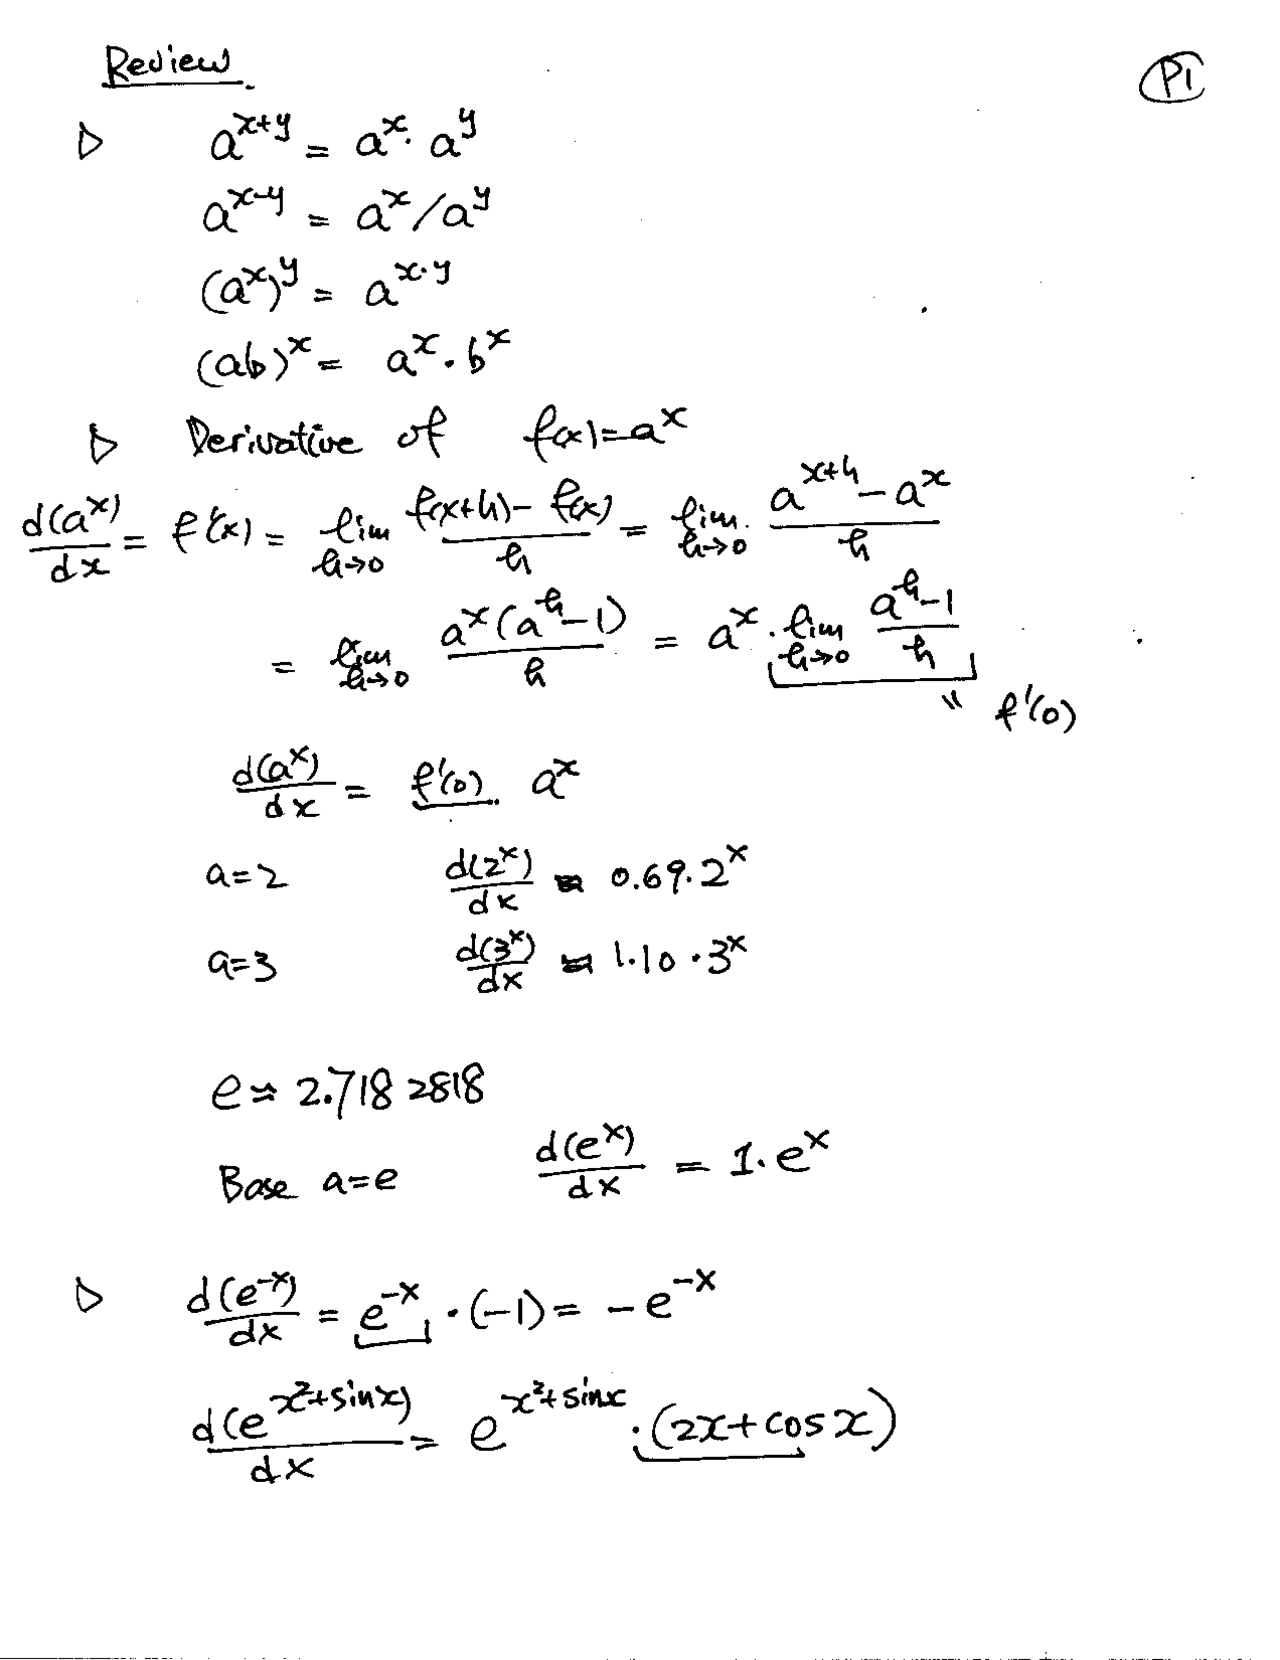 Review.
P1
▷ a^{x+y} = a^x · a^y
a^{x-y} = a^x / a^y
(a^x)^y = a^{x·y}
(ab)^x = a^x · b^x
▷ Derivative of f(x) = a^x
d(a^x)/dx = f'(x) = lim_{h→0} (f(x+h) - f(x))/h = lim_{h→0} (a^{x+h} - a^x)/h
= lim_{h→0} a^x(a^h - 1)/h = a^x · lim_{h→0} (a^h - 1)/h
" f'(0)
d(a^x)/dx = f'(0) a^x
a=2 d(2^x)/dx ≈ 0.69 · 2^x
a=3 d(3^x)/dx ≈ 1.10 · 3^x
e ≈ 2.718 2818
Base a=e d(e^x)/dx = 1 · e^x
▷ d(e^{-x})/dx = e^{-x} · (-1) = -e^{-x}
d(e^{x²+sinx})/dx = e^{x²+sinx} · (2x+cosx)